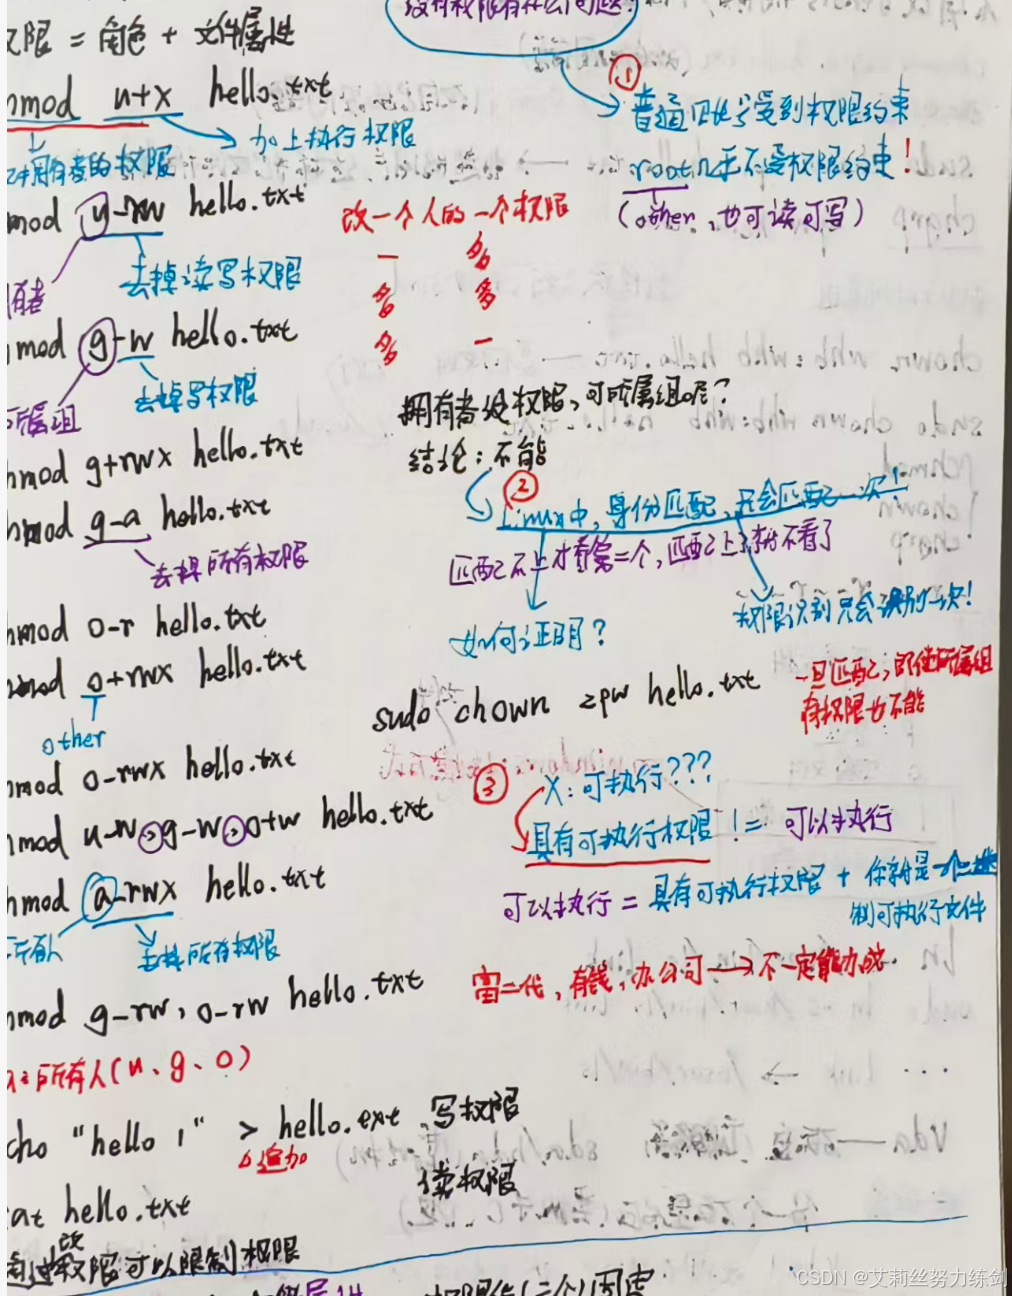 没有权限有什么问题?
权限 = 角色 + 文件属性
hmod u+x hello.txt
加上执行权限
有者的权限
mod u-rw hello.txt
去掉读写权限
有者
mod g-w hello.txt
去掉写权限
所属组
hmod g+rwx hello.txt
hmod g-a hello.txt
去掉所有权限
hmod o-r hello.txt
hmod o+rwx hello.txt
other
hmod o-rwx hello.txt
hmod u-w,g-w,o+w hello.txt
hmod a-rwx hello.txt
所有人
去掉所有权限
hmod g-rw, o-rw hello.txt
a:所有人(u、g、o)
cho "hello 1" > hello.txt 写权限
追加
读权限
at hello.txt
权限可以限制权限
①
普通账号受到权限约束
root几乎不受权限约束!
(other,也可读可写)
改一个人的一个权限
一 多
多 多
多 一
拥有者没权限,可所属组呢?
结论:不能
②
Linux中,身份匹配,只会匹配一次!
匹配不上才看第二个,匹配上了就不看了
权限识别只会识别一次!
如何证明?
sudo chown zpw hello.txt
一旦匹配,即使所属组
有权限也不能
③ X:可执行???
具有可执行权限 != 可以执行
可以执行 = 具有可执行权限 + 你就是一个二进
制可执行文件
富二代,有钱,办公司→不一定能办成.
CSDN @艾莉丝努力练剑